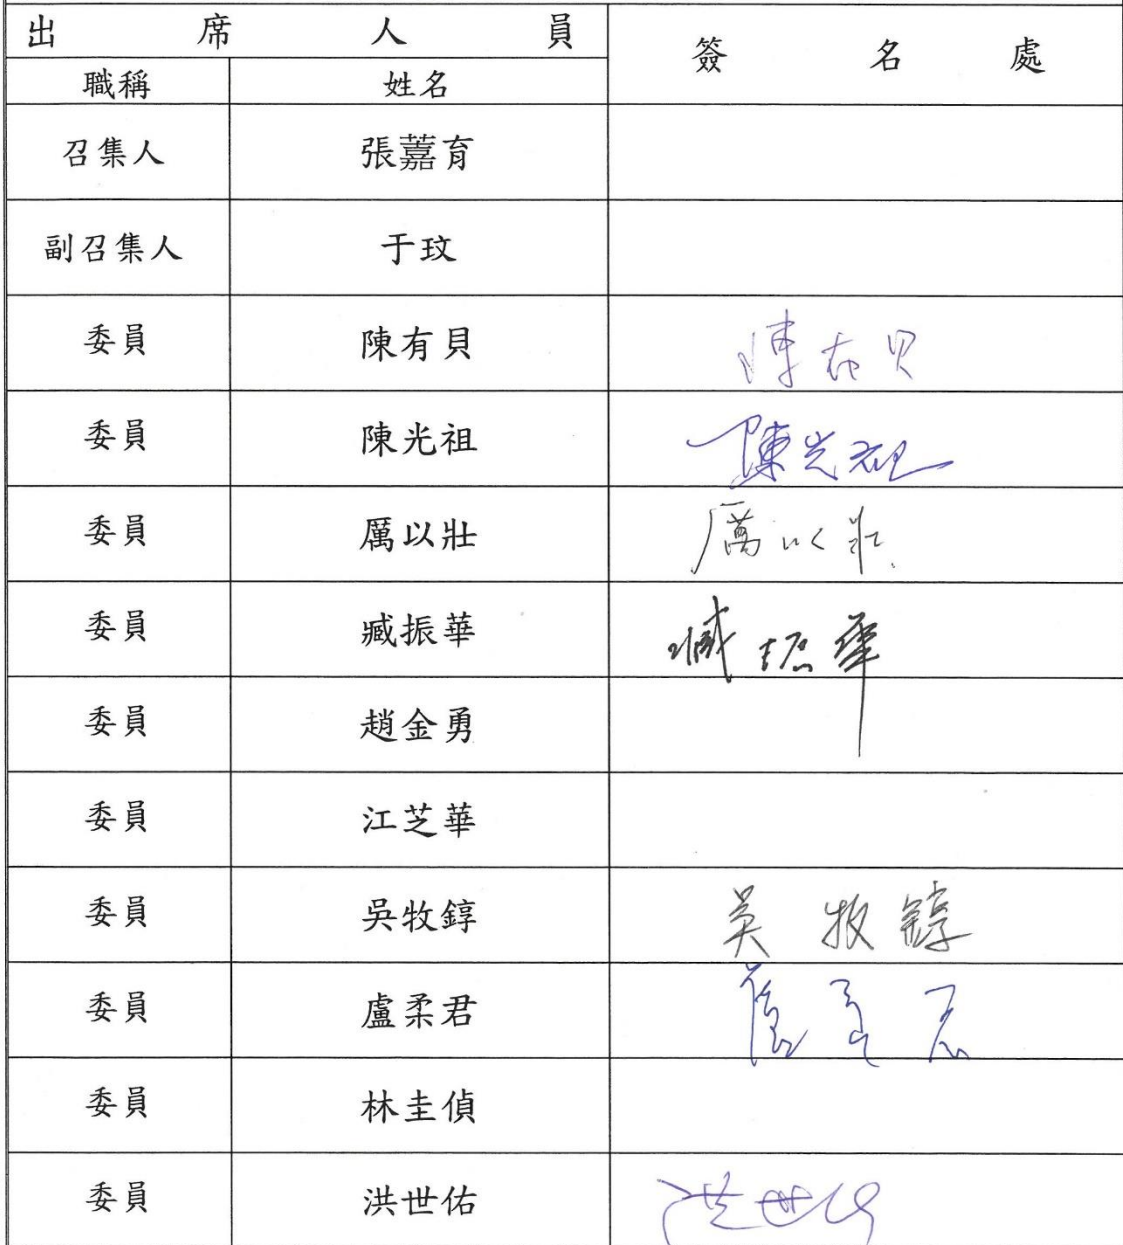 出席人員 簽名處
職稱 姓名
召集人 張蕙育
副召集人 于玟
委員 陳有貝 陳有貝
委員 陳光祖 陳光祖
委員 厲以壯 厲以壯
委員 臧振華 臧振華
委員 趙金勇
委員 江芝華
委員 吳牧錞 吳牧錞
委員 盧柔君 盧柔君
委員 林圭偵
委員 洪世佑 洪世佑